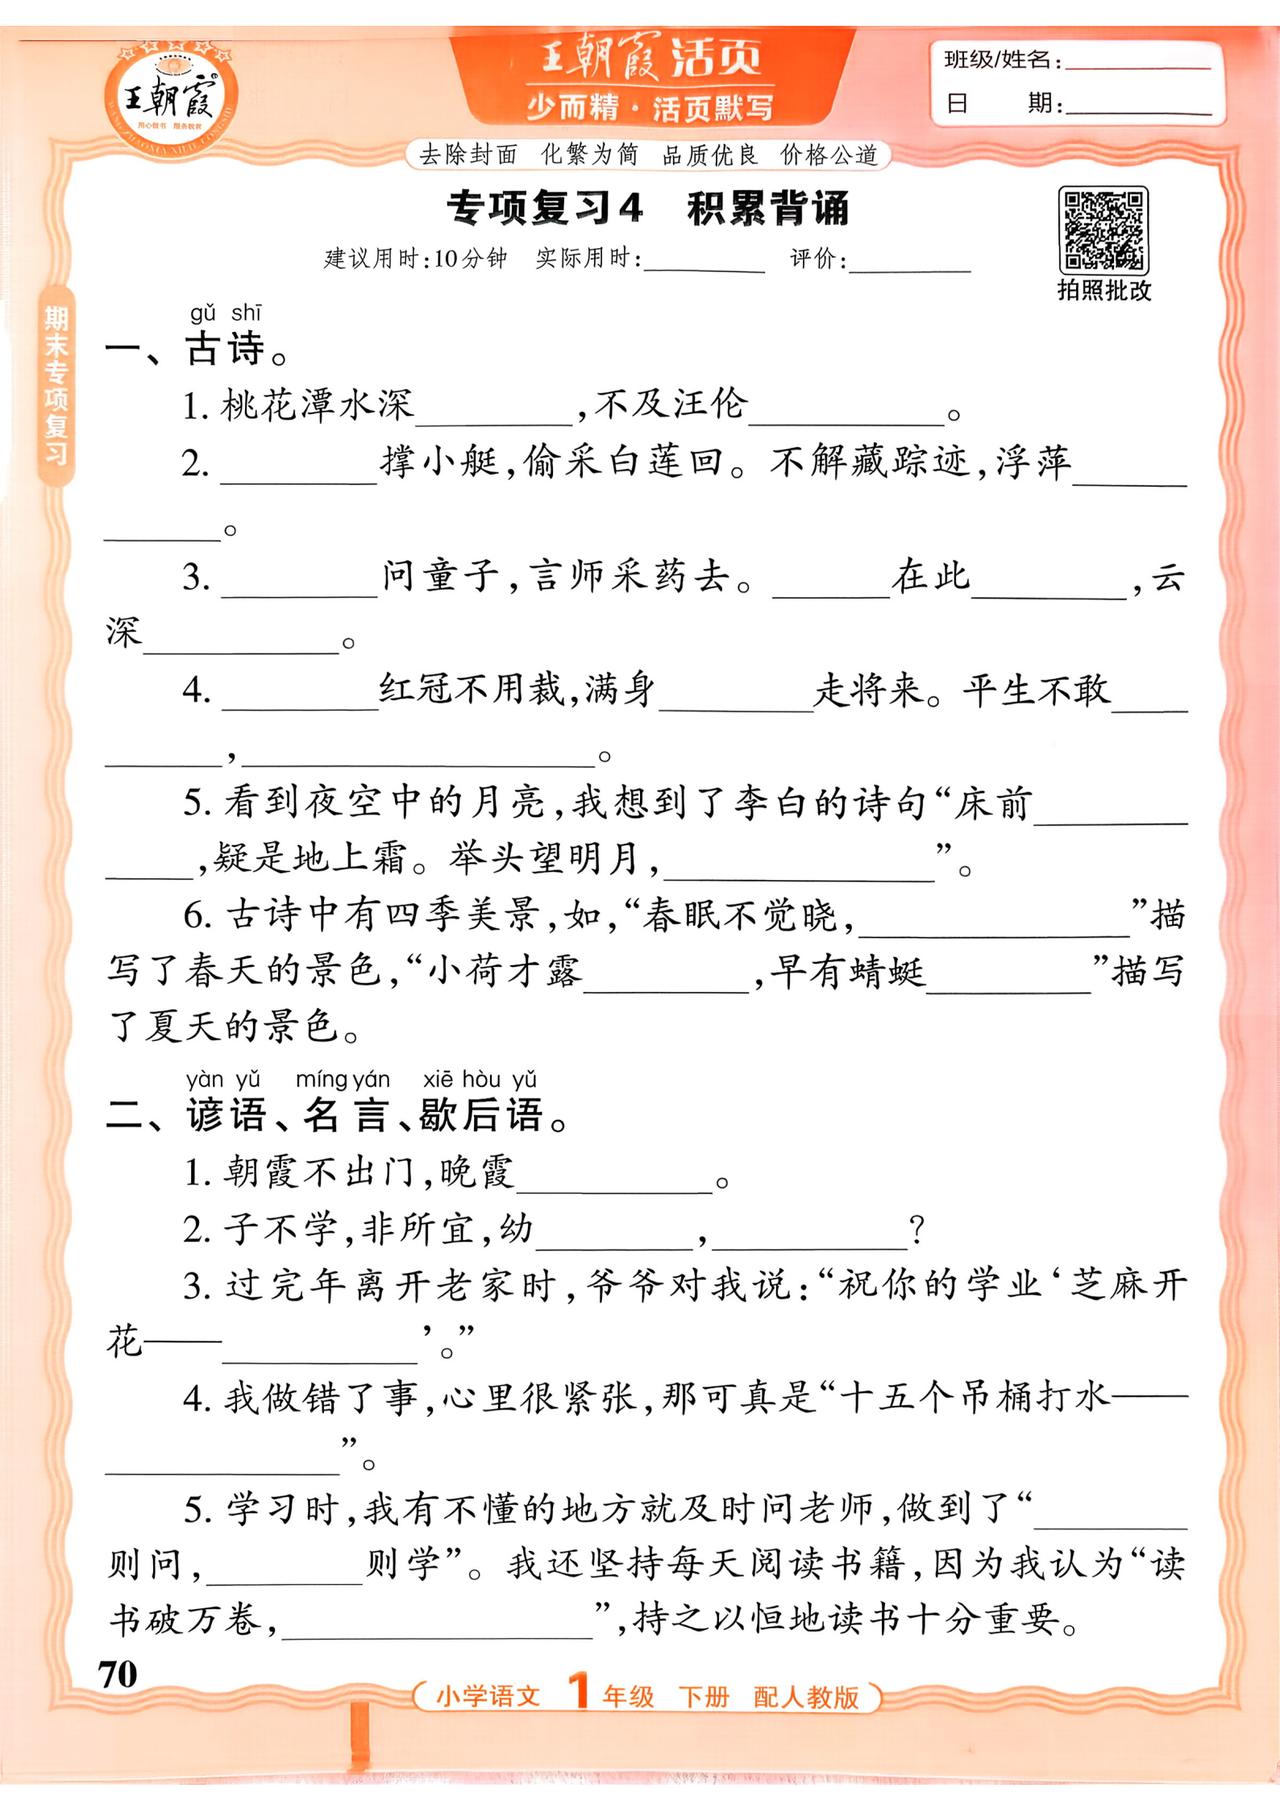 王朝霞
用心做书 服务教育
王朝霞 活页
少而精·活页默写
班级/姓名:
日 期:
去除封面 化繁为简 品质优良 价格公道
专项复习4 积累背诵
建议用时:10分钟 实际用时: 评价:
拍照批改
期末专项复习
gǔ shī
一、古诗。
1. 桃花潭水深________,不及汪伦________。
2. ________撑小艇,偷采白莲回。不解藏踪迹,浮萍________
________。
3. ________问童子,言师采药去。________在此________,云
深________。
4. ________红冠不用裁,满身________走将来。平生不敢________
________,________。
5. 看到夜空中的月亮,我想到了李白的诗句“床前________
________,疑是地上霜。举头望明月,________”。
6. 古诗中有四季美景,如,“春眠不觉晓,________”描
写了春天的景色,“小荷才露________,早有蜻蜓________”描写
了夏天的景色。
yàn yǔ míng yán xiē hòu yǔ
二、谚语、名言、歇后语。
1. 朝霞不出门,晚霞________。
2. 子不学,非所宜,幼________,________?
3. 过完年离开老家时,爷爷对我说:“祝你的学业‘芝麻开
花——________’。”
4. 我做错了事,心里很紧张,那可真是“十五个吊桶打水——
________”。
5. 学习时,我有不懂的地方就及时问老师,做到了“________
则问,________则学”。我还坚持每天阅读书籍,因为我认为“读
书破万卷,________”,持之以恒地读书十分重要。
70
小学语文 1年级 下册 配人教版